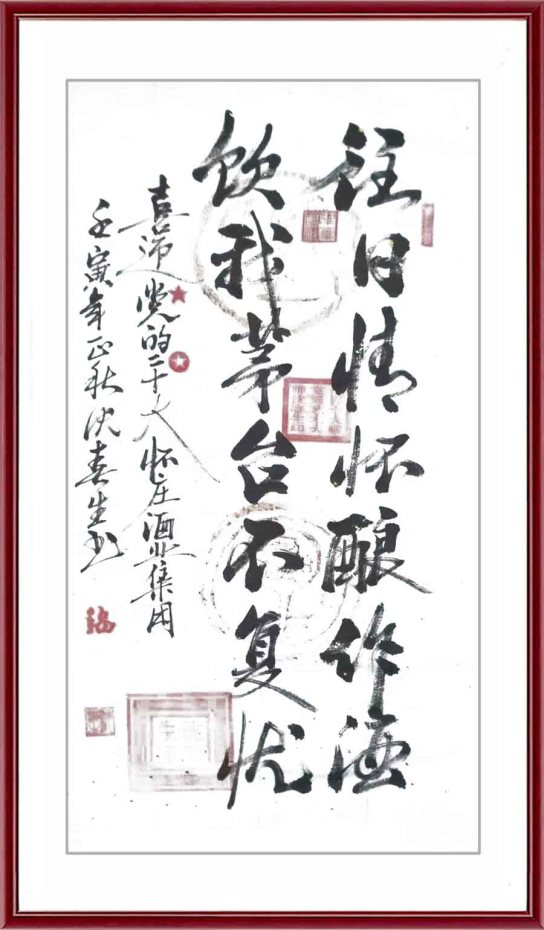 往日情怀酿作酒
饮我茅台不复忧
喜沛迎党的二十大怀庄酒业集团
壬寅年正秋沈喜生书